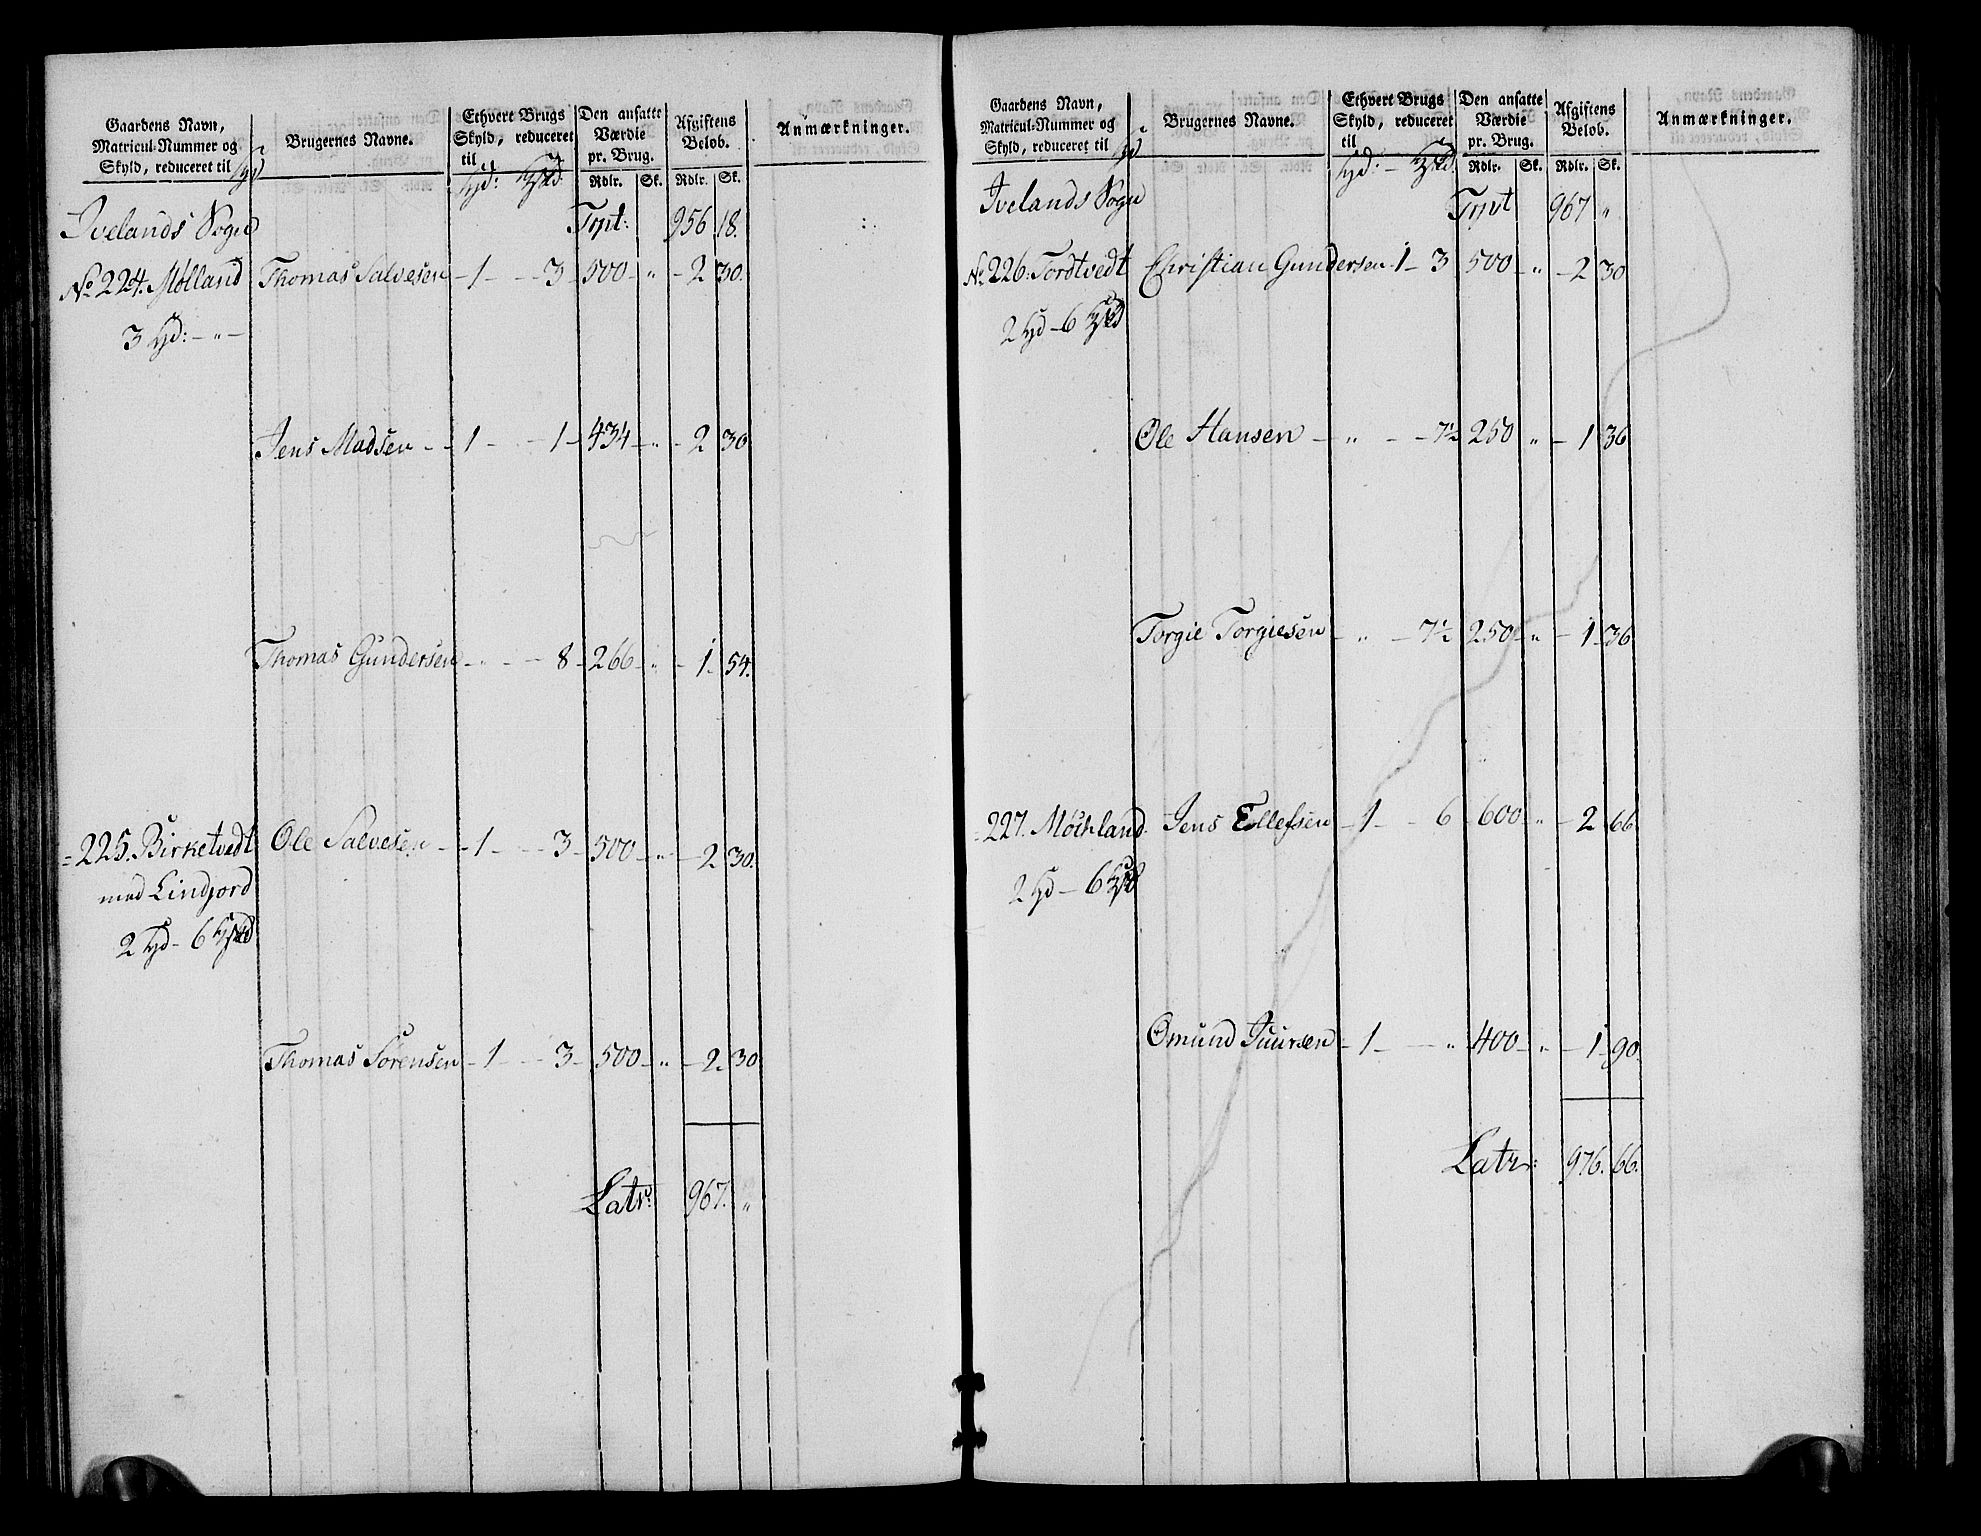 Gaardens Navn, Matricul-Nummer og Skyld, reduceret til
Brugernes Navne.
Ethvert Brugs Skyld, reduceret til
Den ansatte Værdie pr. Brug.
Rdlr. Sk.
Afgiftens Beløb.
Rdlr. Sk.
Anmærkninger.
Ivelands Sogn Trpt: 956 18.
No 224. Mølland Thomas Salvesen - 1 - - 3 - 500 - " - 2 30.
3 hd: - " -
Jens Madsen - - 1 - - 1 - 434 - " - 2 30.
Thomas Gundersen - " - - 8 - 266 - " - 1 - 54.
= 225. Birketvedt Ole Salvesen - - 1 - - 3 - 500 - " - 2 30.
med Lindjord
2 hd - 6
Thomas Sörensen - 1 - - 3 - 500 - " - 2 - 30
Latr: 967. "
Gaardens Navn, Matricul-Nummer og Skyld, reduceret til
Brugernes Navne.
Ethvert Brugs Skyld, reduceret til
Den ansatte Værdie pr. Brug.
Rdlr. Sk.
Afgiftens Beløb.
Rdlr. Sk.
Anmærkninger.
Ivelands Sogn Trpt 967 "
No 226. Tordtvedt Christian Gundersen - 1 - 3 500 - " - 2 30
2 hd - 6
Ole Hansen - " - - 7½ 250 " - 1 36
Torgie Torgiesen - " - 7½ 250 - " - 1 - 36
= 227. Møchland Jens Ellefsen - 1 - - 6 - 600 - " - 2 66
2 hd - 6
Omund Juursen - 1 - - " 400 - " - 1 - 90.
Latr: 976. 66.